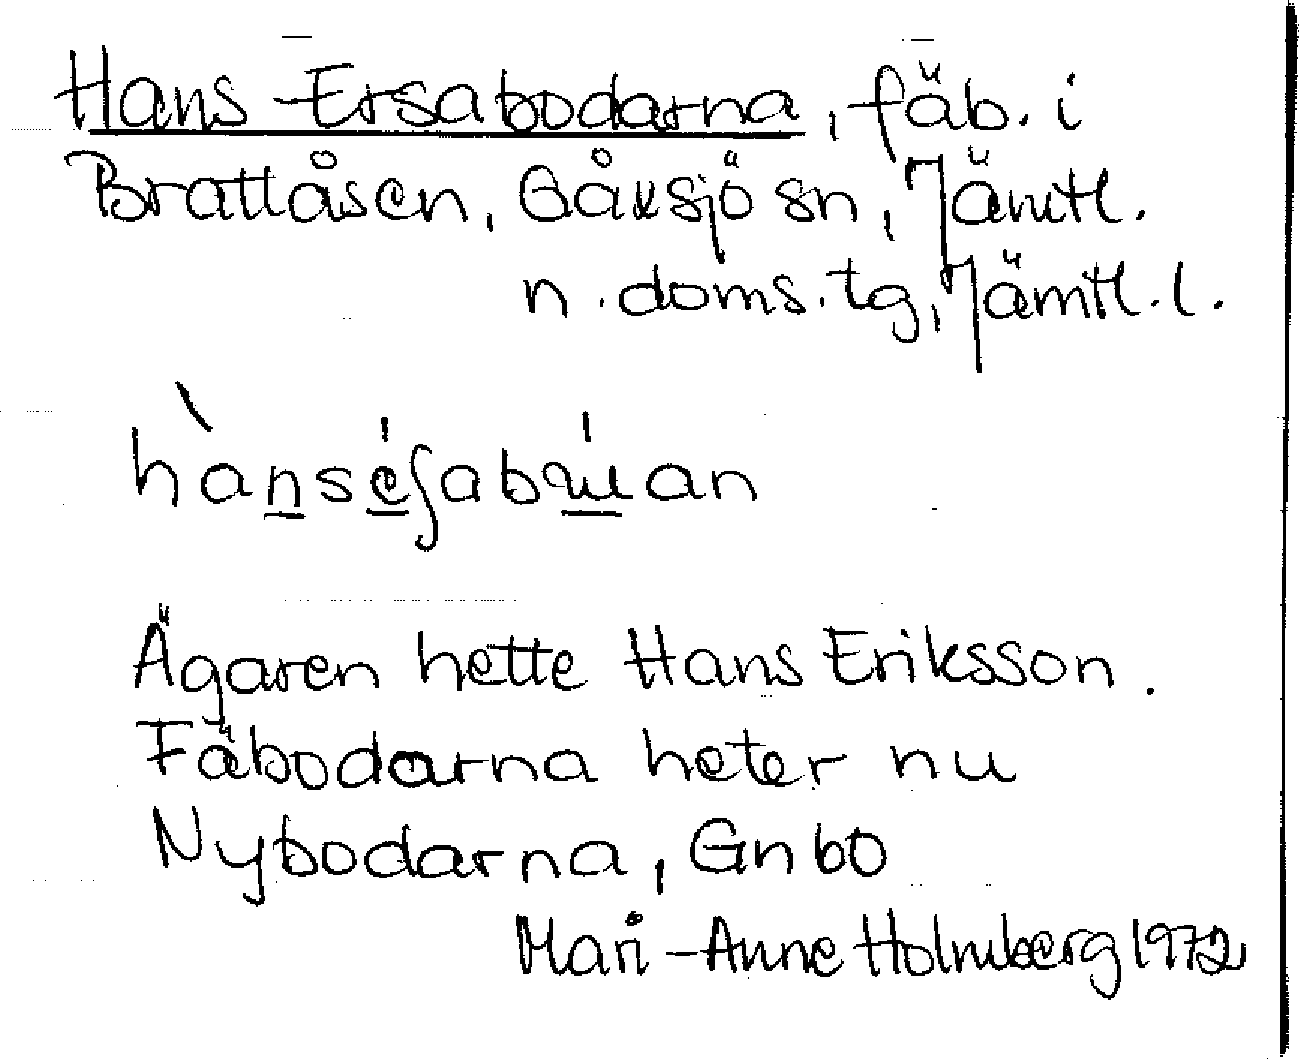 Hans Ersabodarna, fäb. i
Brattåsen, Gåxsjö sn, Jämtl.
n. doms. tg, Jämtl. l.
Ägaren hette Hans Eriksson.
Fäbodarna heter nu
Nybodarna, Gnbo
Mari-Anne Holmberg 1972